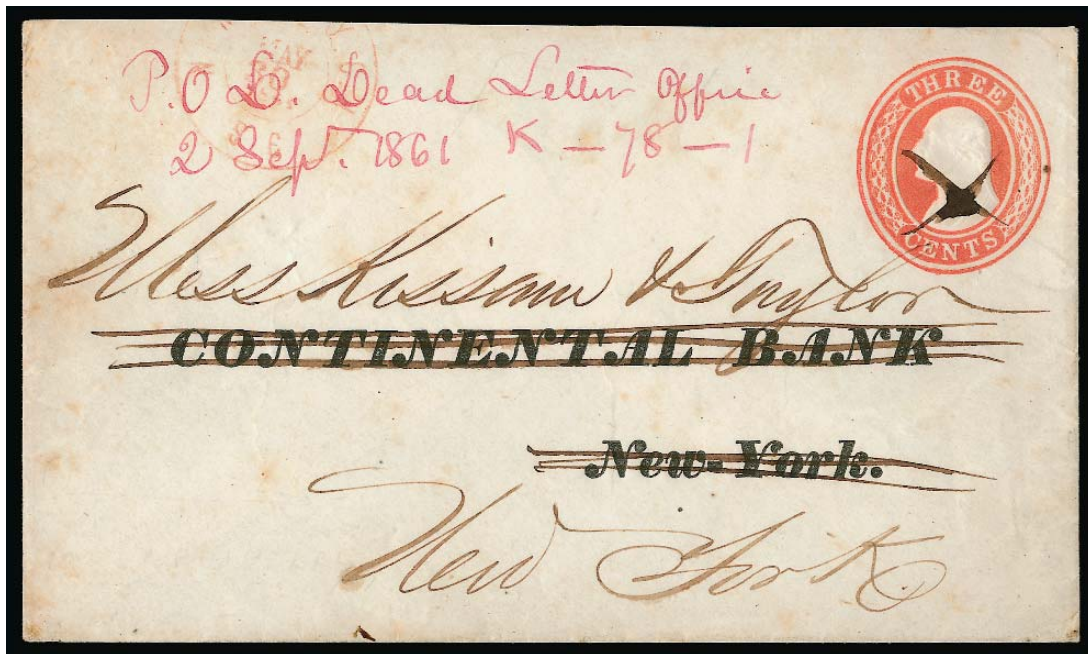 MAY
P.O D. Dead Letter Office
2 Sept. 1861 K – 78 – 1
THREE
CENTS
Mess Kissam & Taylor
CONTINENTAL BANK
New-York.
New York